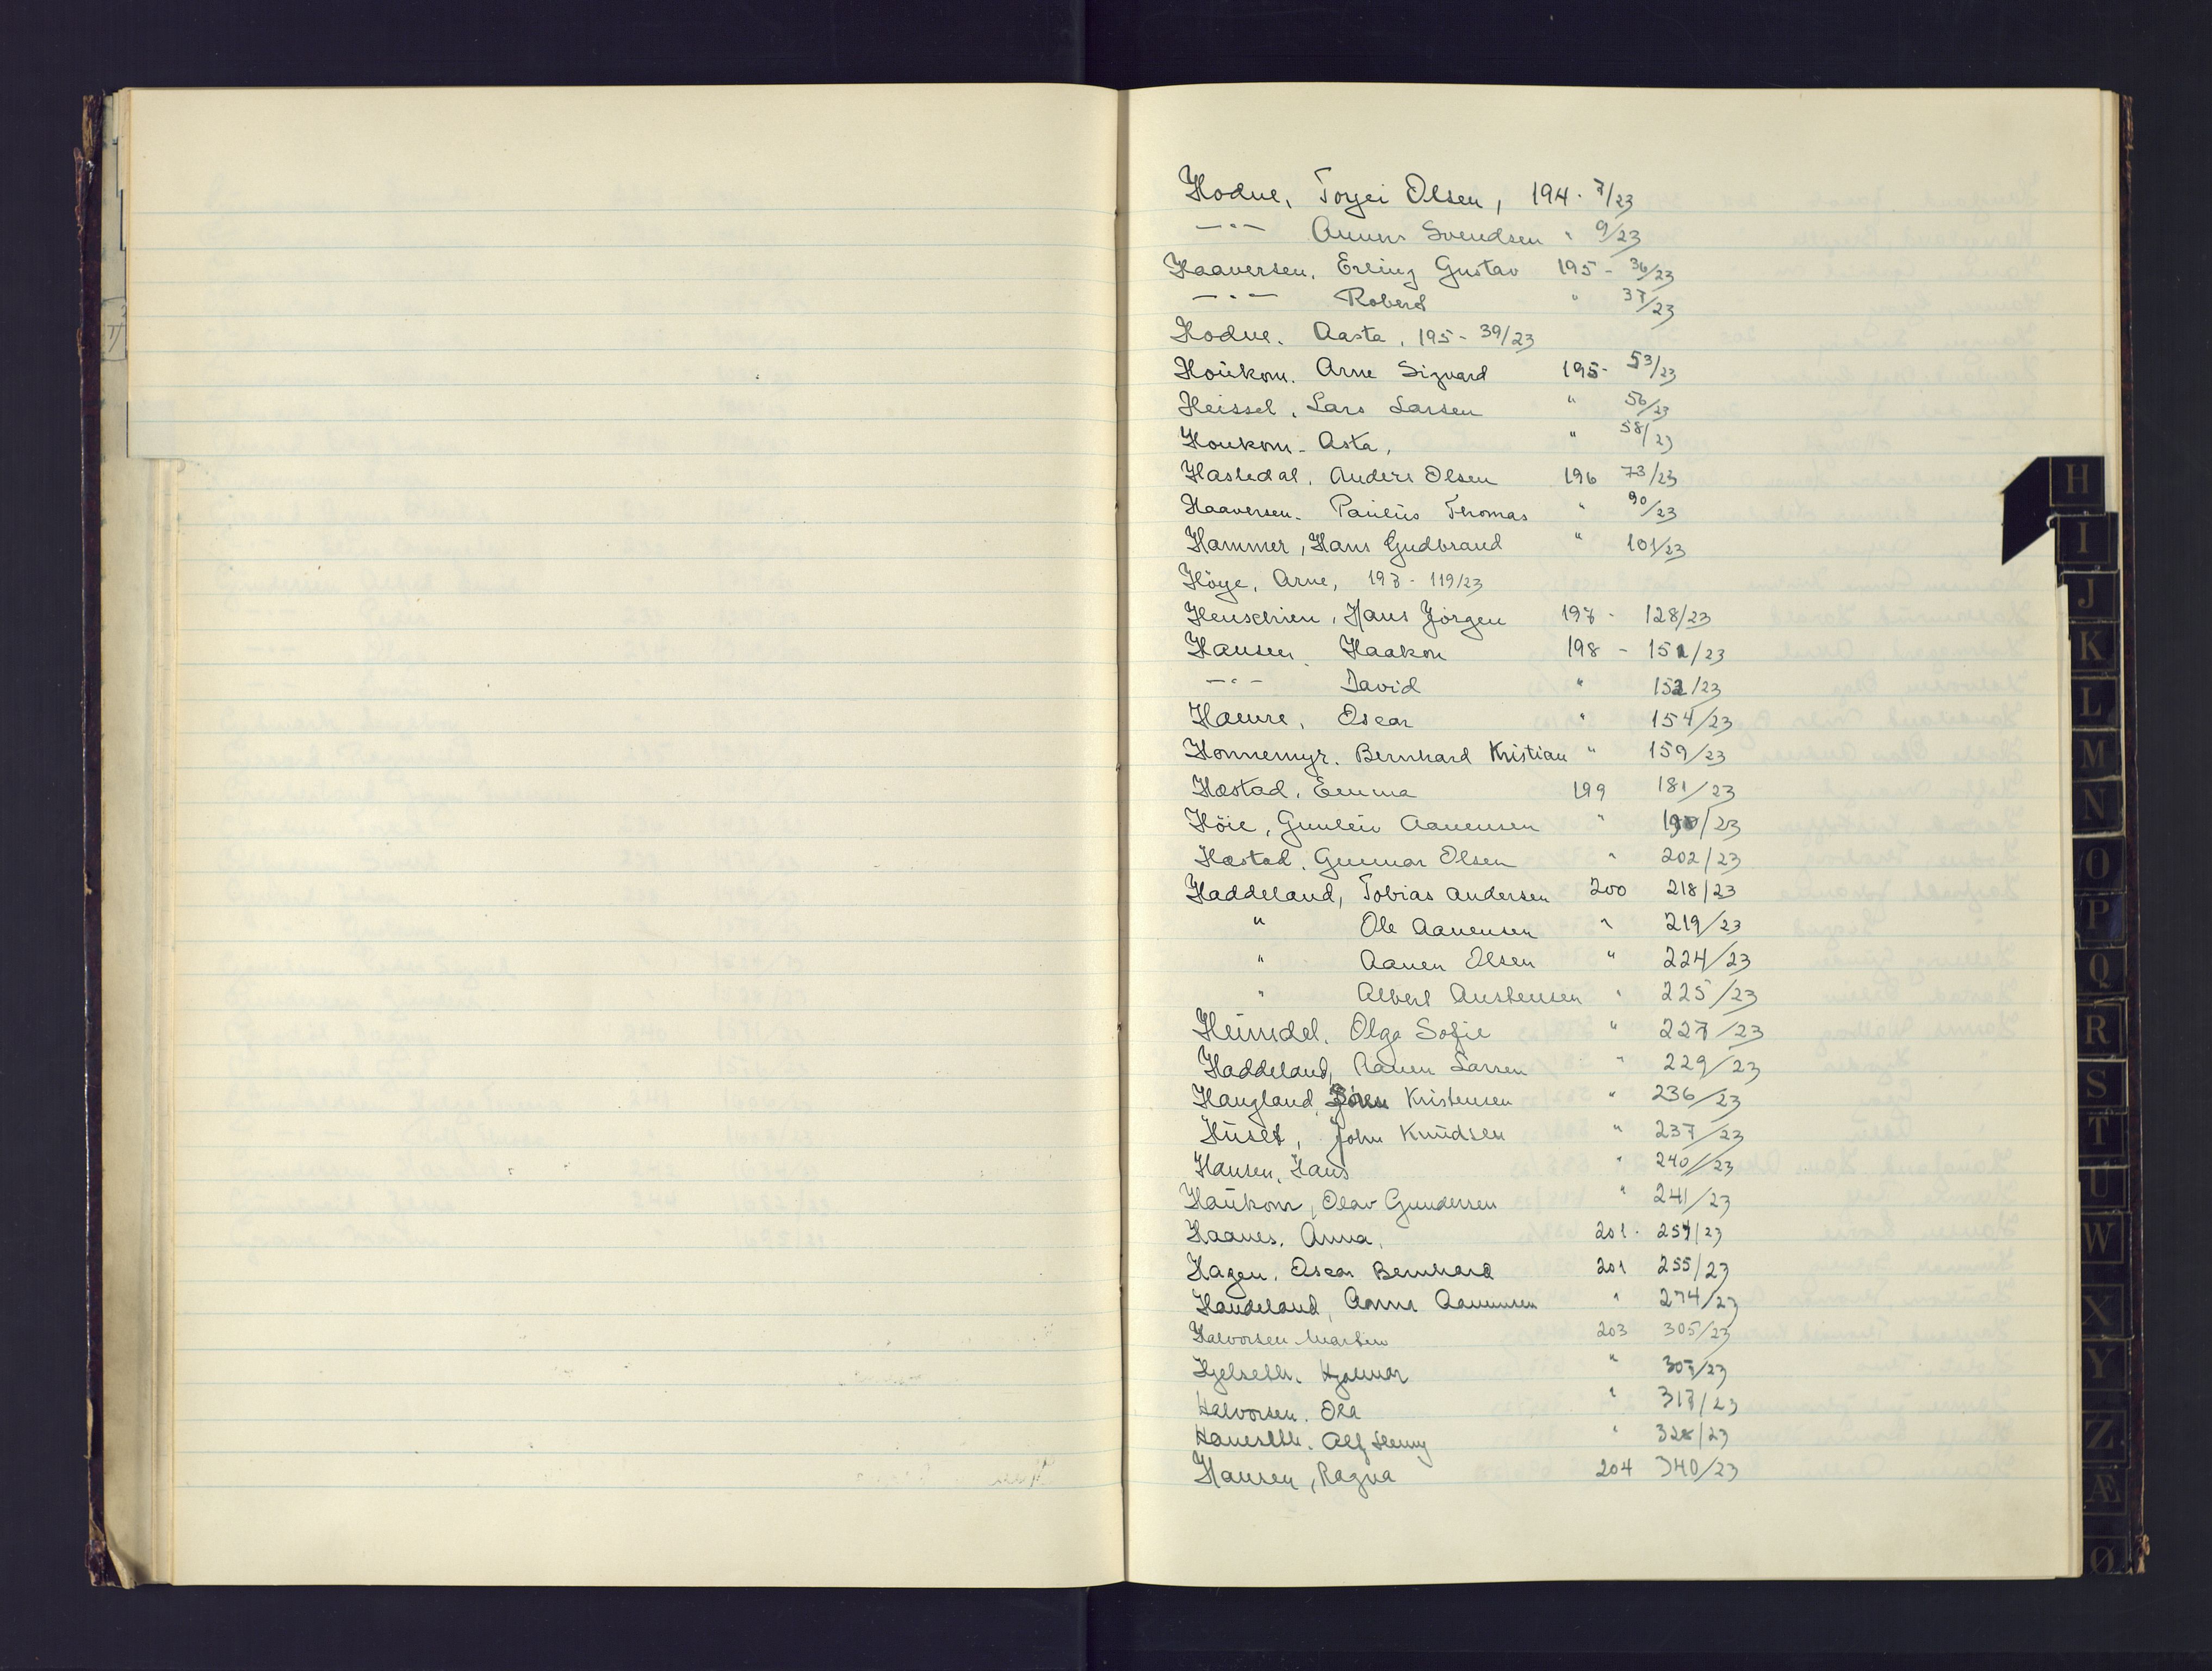 Hodne, Torjei Olsen, 194 - 7/23
—"— Svendsen " 9/23
Haaversen, Erling Gustav 195 - 36/23
—"— Robert " 37/23
Hodne. Aasta, 195 - 39/23
Houkom. Arne Sigvard 195 - 53/23
Heissel, Lars Larsen " 56/23
Houkom. Asta, " 58/23
Hasledal, Anders Olsen 196 73/23
Haaversen. Paulus Thomas " 90/23
Hammer, Hans Gudbrand " 101/23
Höye, Arne, 197 - 119/23
Henschien, Hans Jörgen 197 - 128/23
Hansen, Haakon 198 - 151/23
—"— David " 152/23
Hamre, Oscar " 154/23
Honnemyr. Bernhard Kristian " 159/23
Hæstad, Emma 199 181/23
Höie, Gunleiv Aanensen " /23
Hæstad, Gunnar Olsen " 202/23
Haddeland, Tobias Andersen 200 218/23
" Ole Aanensen " 219/23
" Aanen Olsen " 224/23
" Albert Austensen " 225/23
Heimdel. Olga Sofie " 227/23
Haddeland, Aanen Larsen " 229/23
Haugland, Sören Kristensen " 236/23
Huset, John Knudsen " 237/23
Hansen, Hans " 240/23
Haukom, Olav Gundersen " 241/23
Haanes. Anna, 201 - 254/23
Hagen, Oscar Bernhard 201 255/23
Haudeland, Aanensen " 274/23
Halvorsen Martin 203 305/23
Hjelseth. Hjalmar " 307/23
Halvorsen. Ola " 317/23
Haneseth. Alf Henry " 328/23
Hansen, Ragna 204 340/23
H
I
J
K
L
M
N
O
P
Q
R
S
T
U
W
X
Y
Z
Æ
Ø